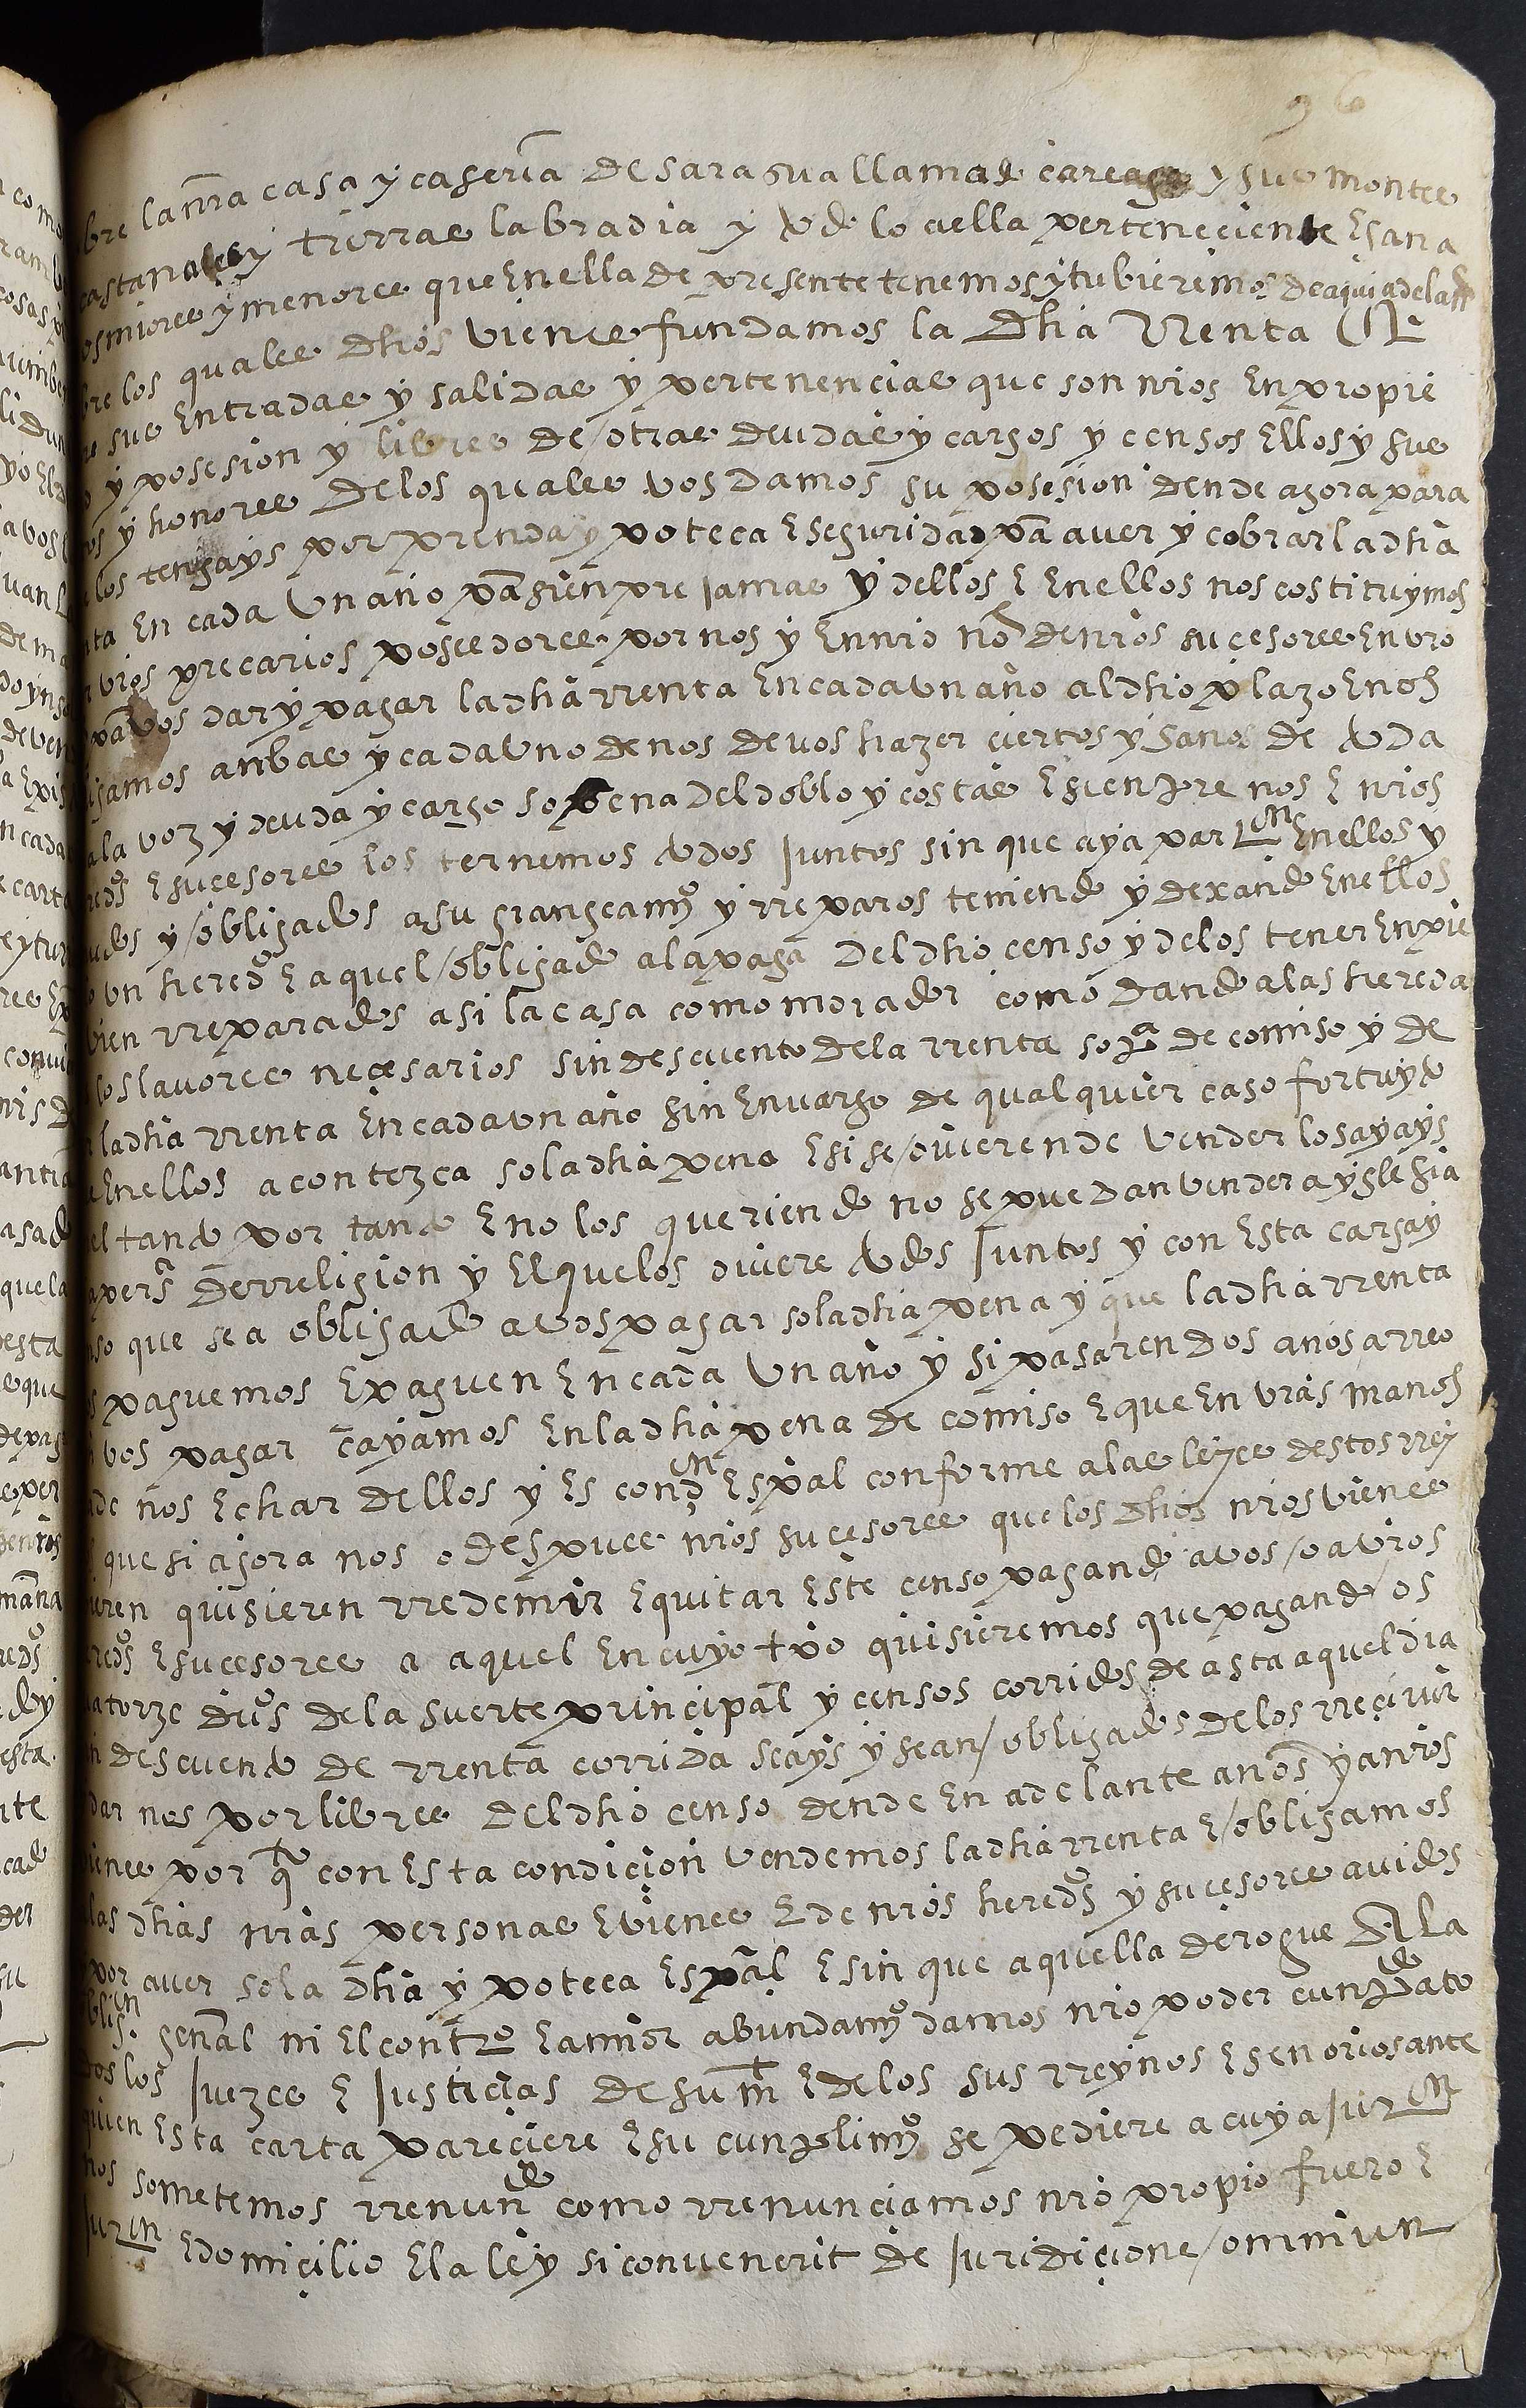 96
bre la nra casa y caseria de saragua llamad careaga y sus montes
castanales y tierras labradia y todo lo a ella perteneciente E sana
os miores y menores que En ella de presente tenemos y tubieremos de aqui adelante
bre los quales dhos vienes fundamos la dha rrenta
sus Entradas y salidas y pertenencias que son nros En propie
y posesion y libres de otras deudas y cargos y censos Ellos y sus
os y honores de los quales vos damos su posesion dende agora para
los tengays por prenda y poteca E seguridad pa aver y cobrar la dha
nta En cada vn año pa sienpre jamas y dellos E En ellos nos costituymos
vros precarios poseedores por nos y En nro no de nros sucesores En vro
pa vos dar y pagar la dha rrenta En cada vn año al dho plazo E nos
ligamos anbas y cada vno de nos de vos hazer ciertos y sanos de toda
ala voz y deuda y cargo so pena del doblo y costas E sienpre nos E nros
reds E sucesores los ternemos todos juntos sin que aya paron En ellos y
udos y obligados a su grangeamo y rreparos teniendo y dexando En ellos
vn heredo E aquel obligado a la paga del dho censo y de los tener En pie
bien rreparados asi la casa como morador como dando a las hereda
sos lavores necesarios sin descuento de la rrenta so pa de comiso y de
la dha rrenta En cada vn año sin Envargo de qualquier caso fortuyto
En ellos acontezca so la dha pena E si se ovieren de vender los ayays
el tanto por tanto E no los queriendo no se puedan vender a yglesia
a pers de rreligion y El que los oviere todos juntos y con Esta carga y
nso que sea obligado a vos pagar so la dha pena y que la dha rrenta
s paguemos E paguen En cada vn año y si pasaren dos años arreo
vos pagar cayamos En la dha pena de comiso E que En vras manos
de nos Echar dellos y Es condn Espal conforme a las leyes destos rrey
que si agora nos o despues nros sucesores que los dhos nros vienes
ieren quisieren rredemir E quitar Este censo pagando a vos o a vros
reds E sucesores a aquel En cuyo tpo quisieremos que pagando os
atorze dus de la suerte principal y censos corridos de asta aquel dia
descuento de rrenta corrida seays y sean obligados de los rrecivir
dar nos por libres del dho censo dende En adelante a nos y a nros
ienes por q con Esta condicion vendemos la dha rrenta E obligamos
las dhas nras personas E vienes E de nros hereds y sucesores avidos
por aver so la dha ypoteca Espal E sin que aquella derogue A la
oblign genal ni El contro E a mior abundamo damos nro poder cunplido ato
dos los juezes E justicias de su mt E de los sus rreynos E senorios ante
quien Esta carta pareciere E su cunplimo se pediere a cuya jurn
nos sometemos rrenundo como rrenunciamos nro propio fuero E
jurn E domicilio E la ley si convenerit de juridicione omniun